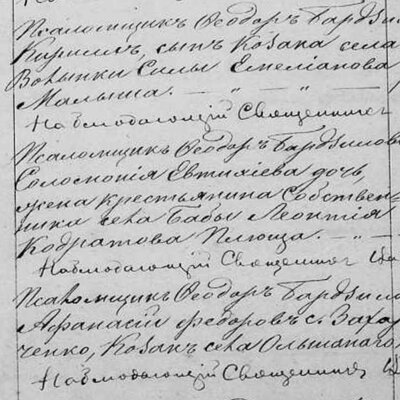 Псаломщикъ Ѳеодоръ Бардзило
Кириллъ, сынъ Козака села
Волынки Силы Емеліанова
Малыша. — „ — „ —
Наблюдающій Священникъ
Псаломщикъ Ѳеодоръ Бардзилов
Соломонія Евтихіева дочь,
жена крестьянина Собствен-
ника села Бабы Леонтія
Кодратова Плюща. — „ —
Наблюдающій Священникъ
Псаломщикъ Ѳеодоръ Бардзило
Афанасій Федоровъ с. Заха
ченко, Козакъ села Ольшанаго
Наблюдающій Священникъ